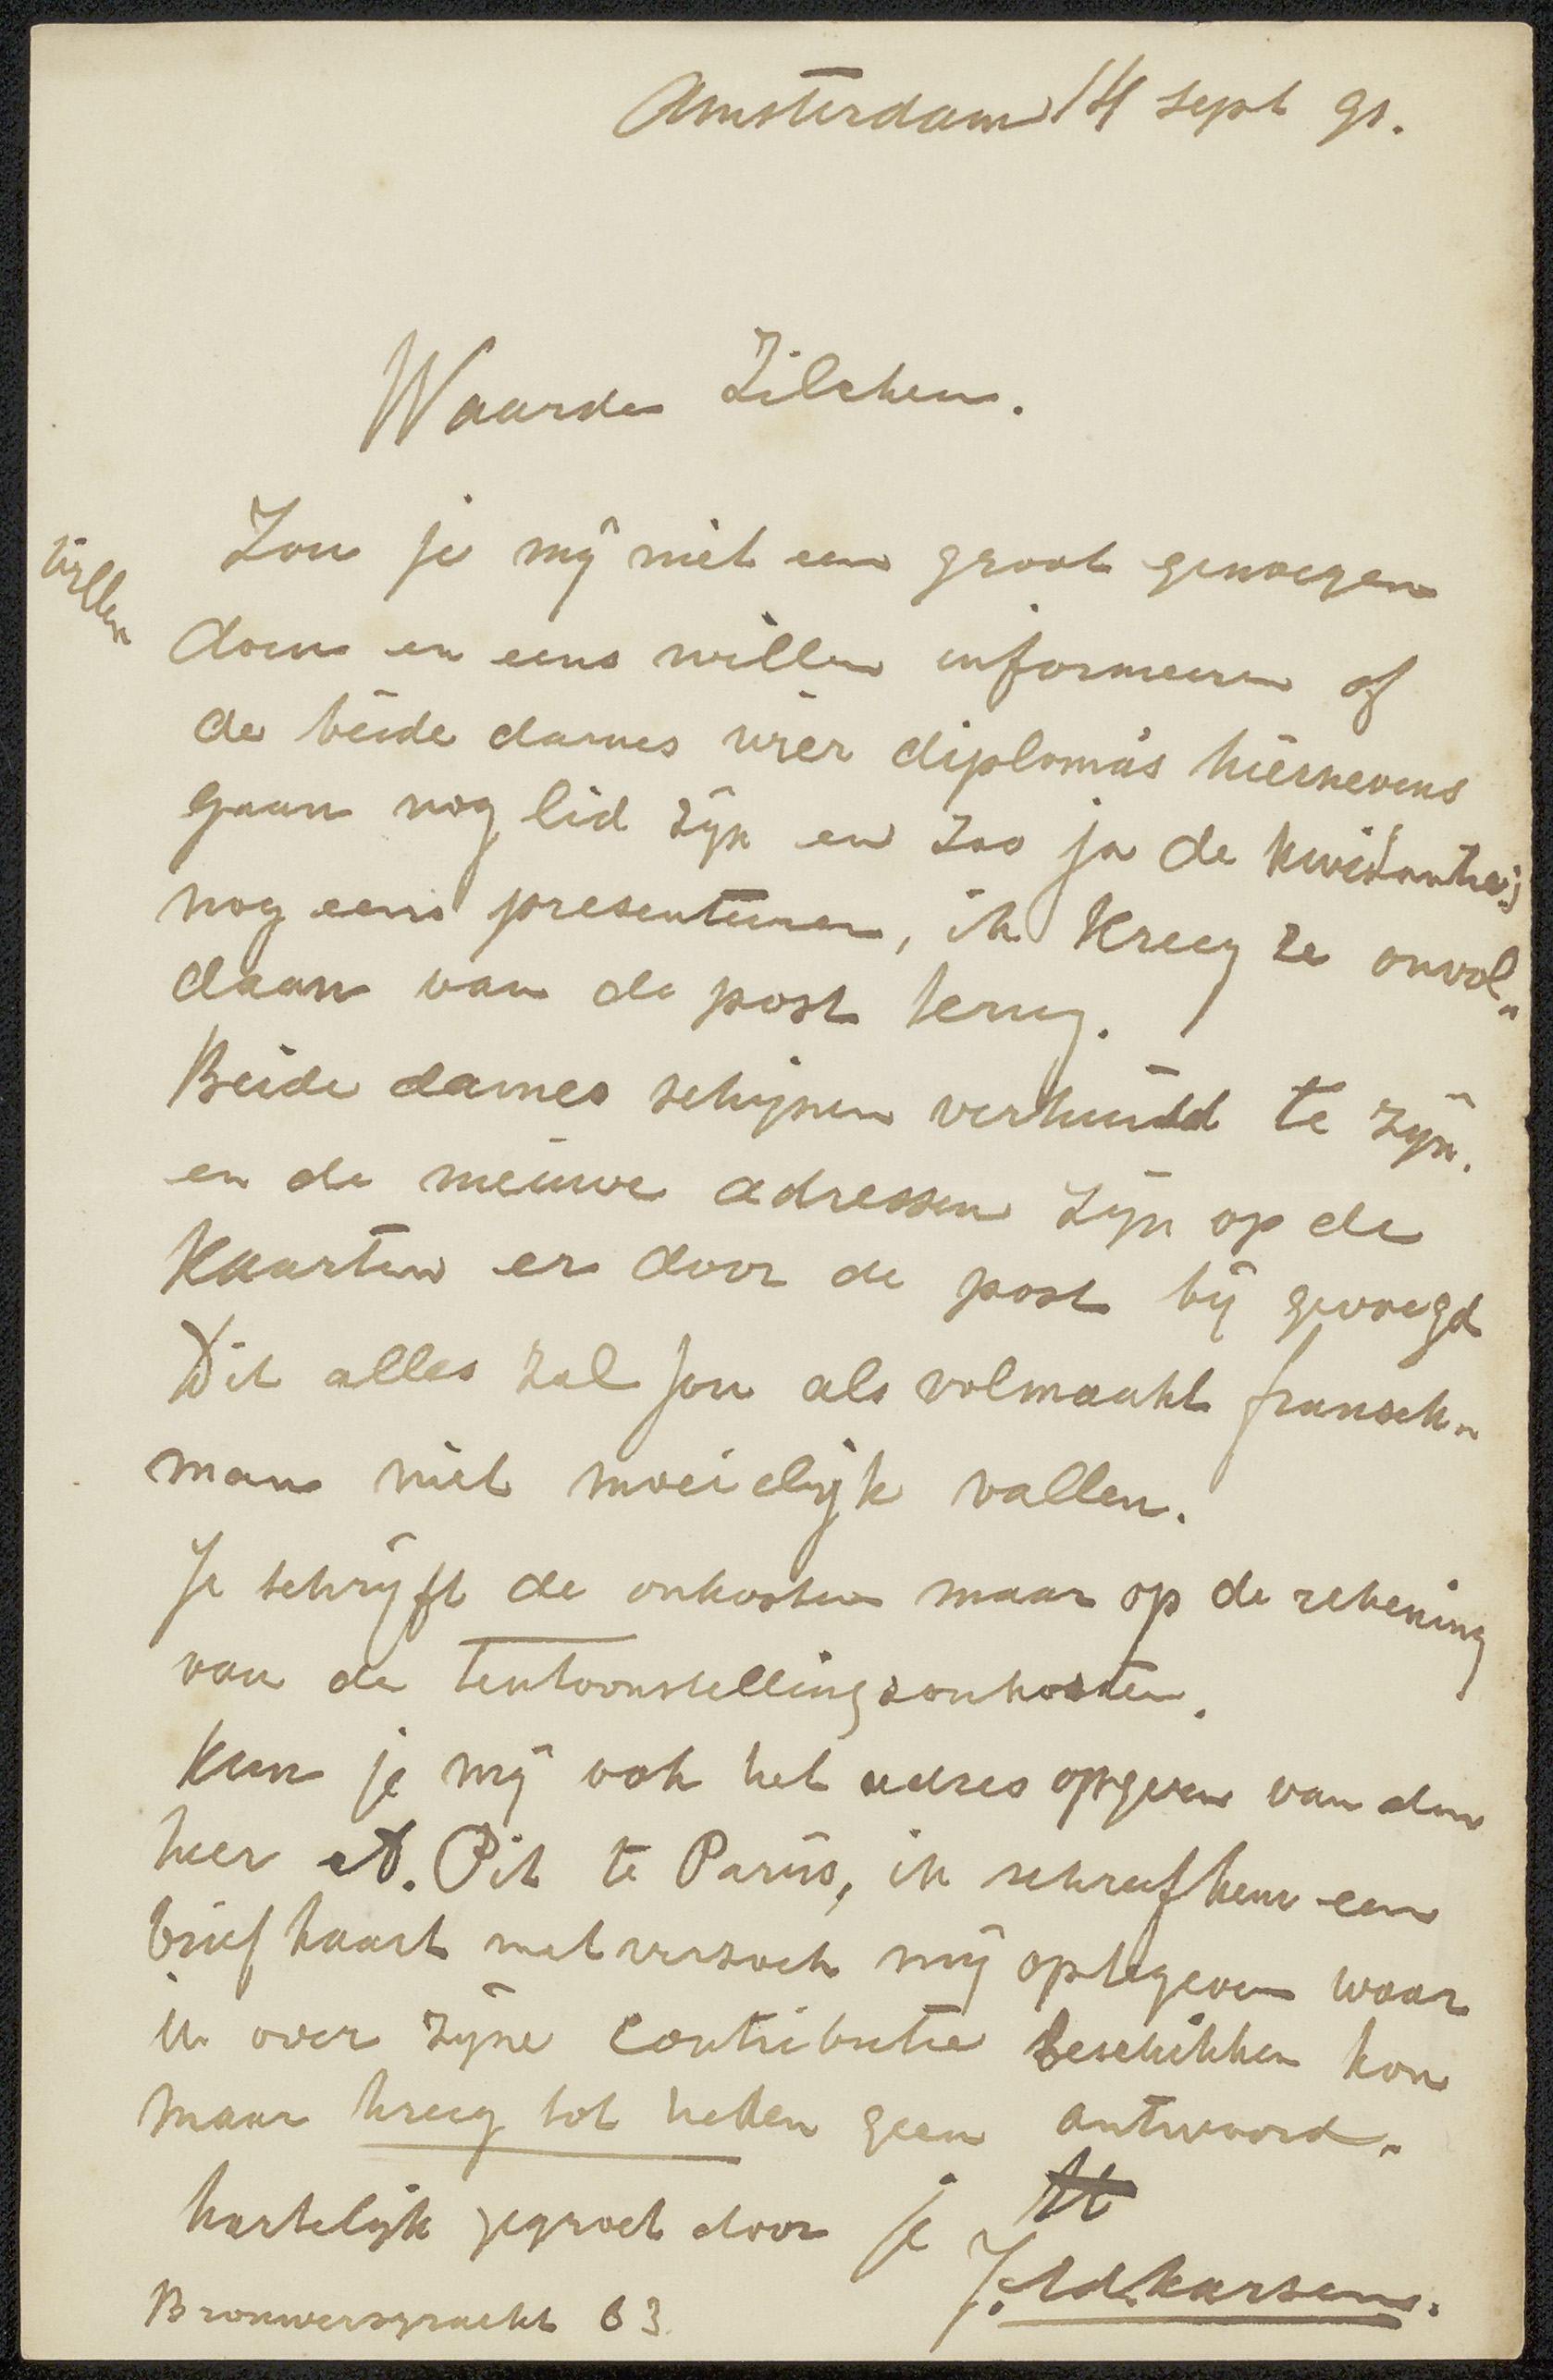 Amsterdam 14 Sept 91.
Waarde Zilcken.
Zou je mij niet een groot genoegen
willen
doen en eens willen informeeren of
de beide dames wier diploma's hiernevens
gaan nog lid zijn en zoo ja de kwitantie's
nog eens presenteeren, ik kreeg ze onvol-
daan van de post terug.
Beide dames schijnen verhuisd te zijn.
en de nieuwe adressen zijn op de
kaarten er door de post bij gevoegd
Dit alles zal jou als volmaakt fransch-
man niet moeielijk vallen.
Je schrijft de onkosten maar op de rekening
van de tentoonstellingsonkosten.
Kun je mij ook het adres opgeven van den
heer A. Pit te Parijs, ik schreef hem een
briefkaart met verzoek mij optegeven waar
ik over zijne contributie beschikken kon
maar kreeg tot heden geen antwoord.
hartelijk gegroet door je
J. Ed. Karsen.
Brouwersgracht 63